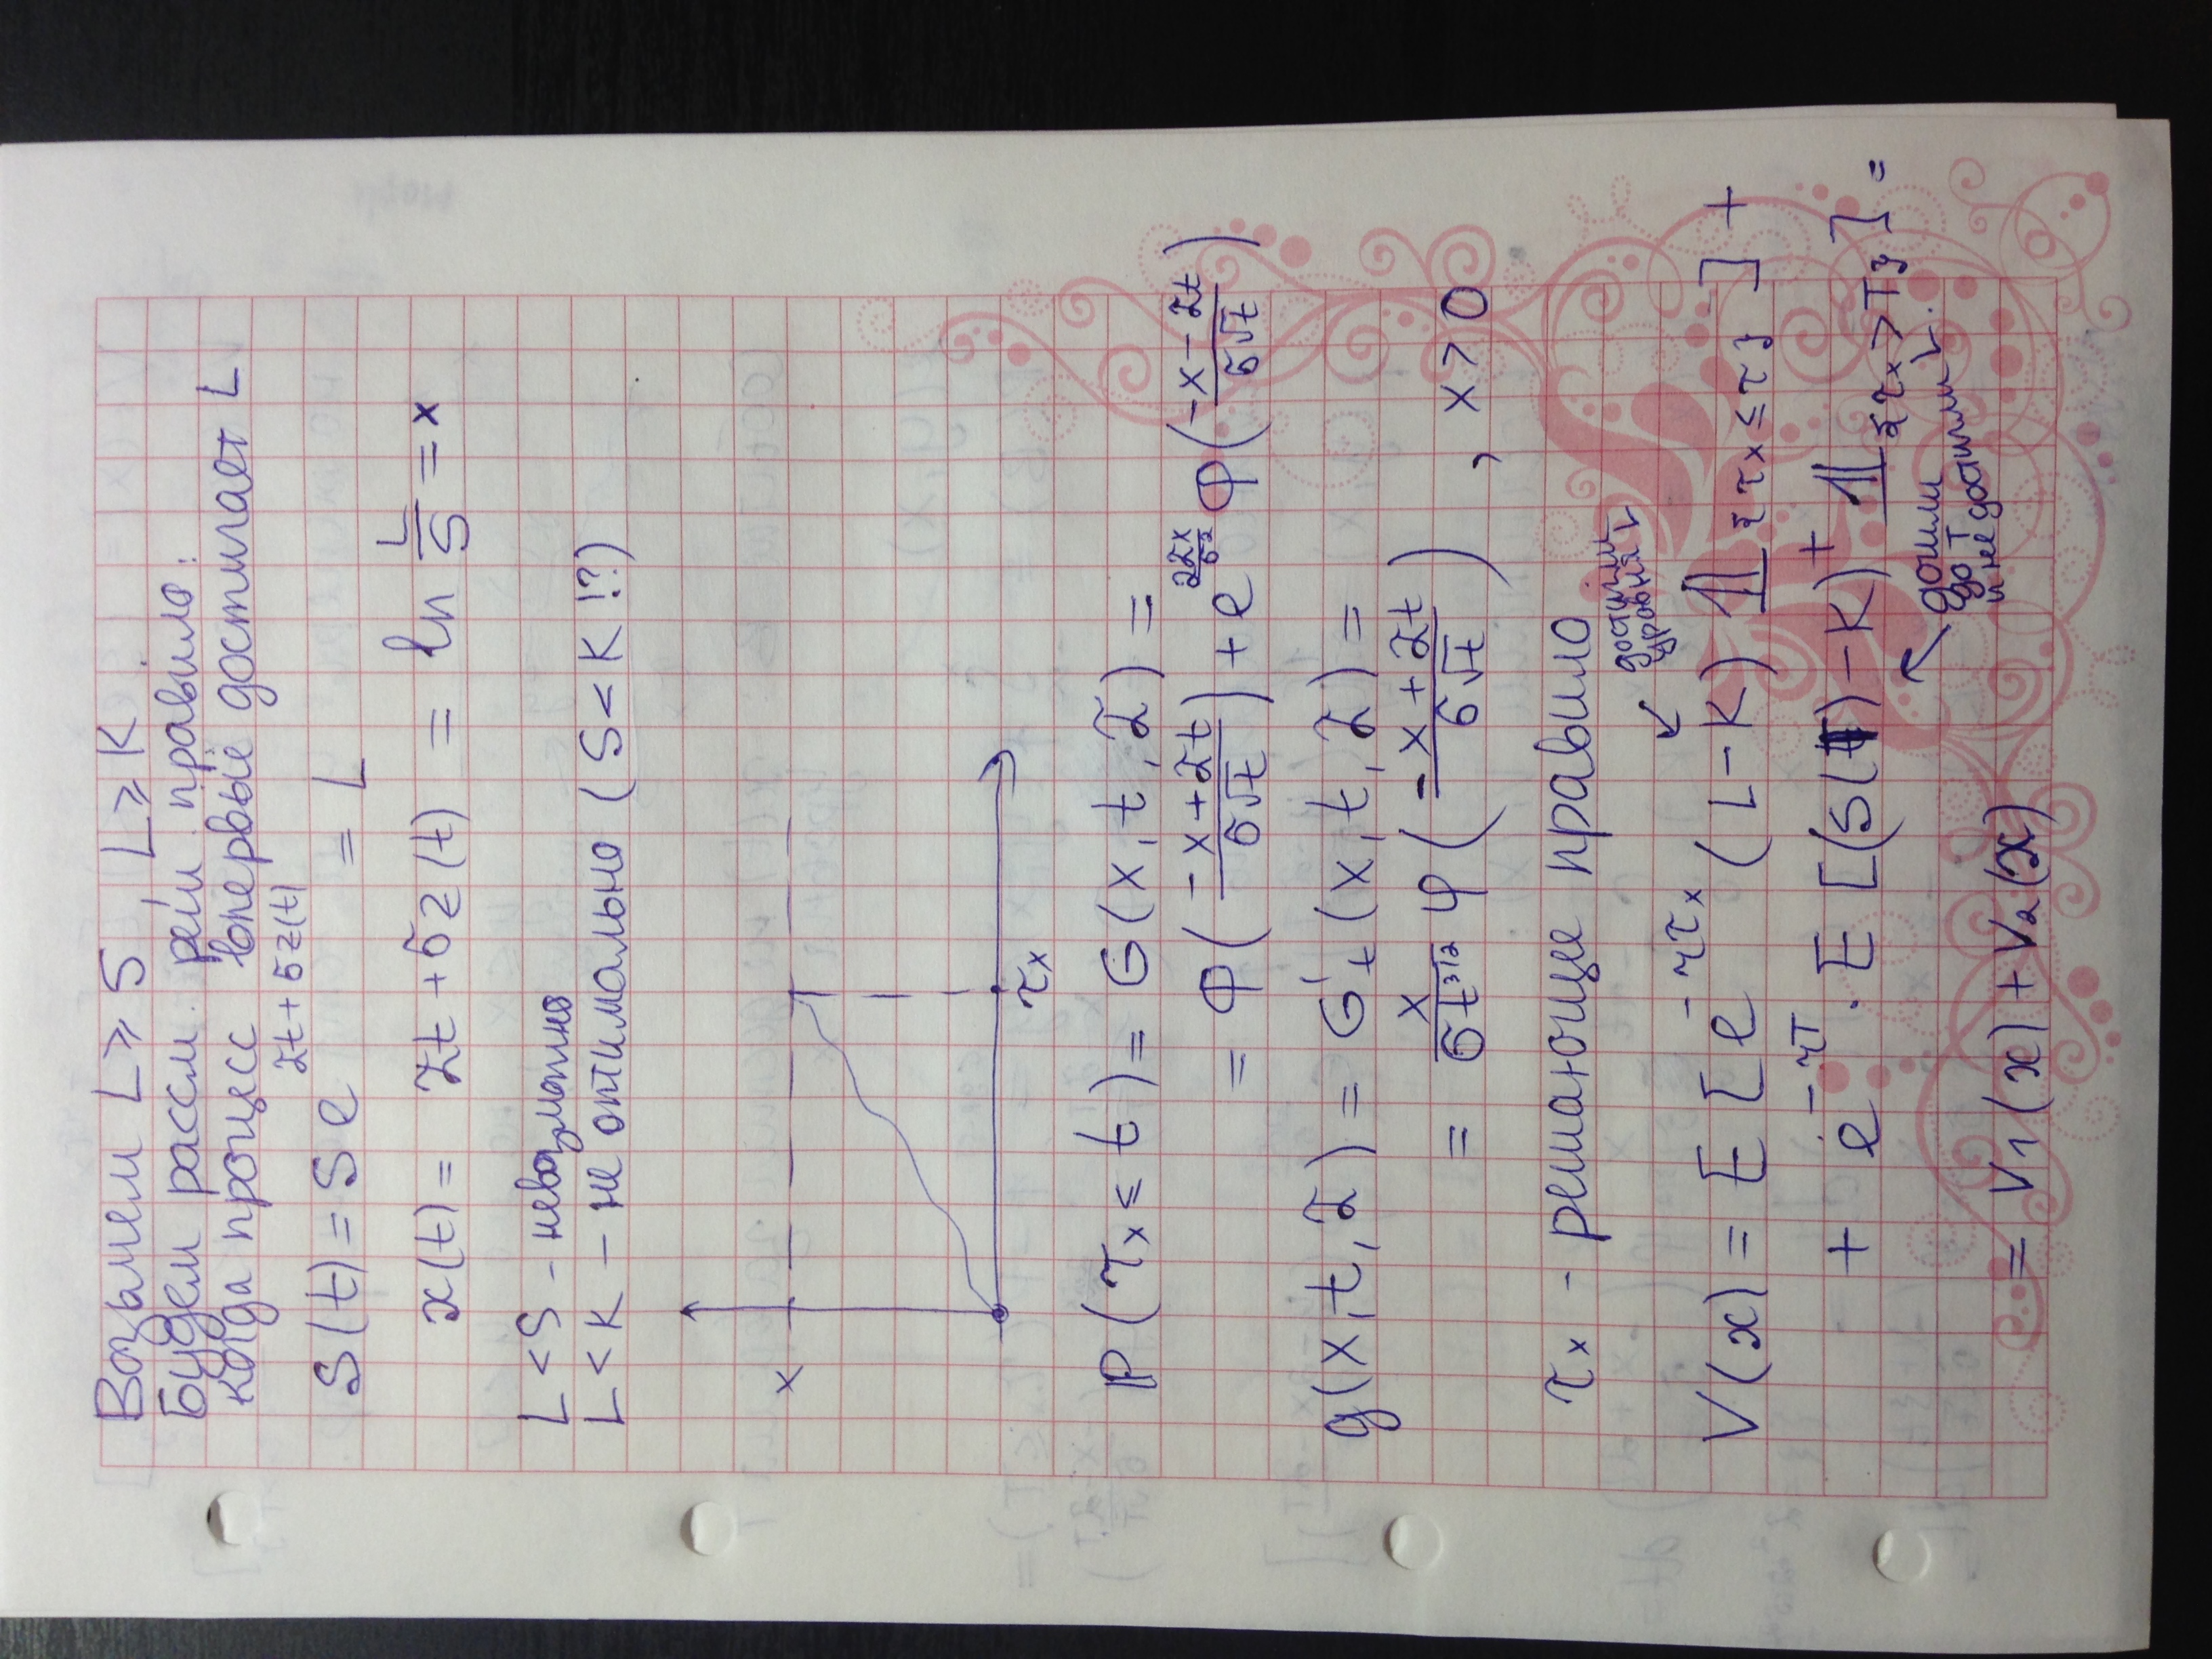 Возьмем L ≥ S L ≥ K
Будем рассм. реш. правило:
когда процесс впервые достигает L
S(t) = S e^{𝓇t + σz(t)} = L
x(t) = 𝓇t + σz(t) = ln L/S = x
L < S - невозможно
L < K - не оптимально (S < K !?)
x
τₓ
ℙ(τₓ ≤ t) = G(x, t, 𝓇) =
= Φ((-x + 𝓇t)/(σ√t)) + e^{2𝓇x/σ²} Φ((-x - 𝓇t)/(σ√t))
g(x, t, 𝓇) = G'ₜ(x, t, 𝓇) =
= x/(σt^{3/2}) φ((-x + 𝓇t)/(σ√t)), x > 0
τₓ - решающее правило
достигли уровня
V(x) = E[e^{-rτₓ}(L - K) 𝟙_{{τₓ ≤ T}}] +
+ e^{-rT} · E[(S(T) - K)⁺ 𝟙_{{τₓ > T}}] =
дошли
до T
и не достигли
= V₁(x) + V₂(x)